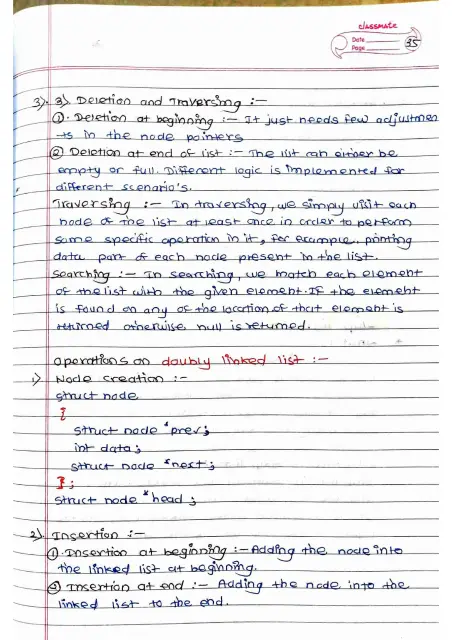 classmate
Date
Page 35
3). 3). Deletion and Traversing :-
①. Deletion at beginning :- It just needs few adjustmen
-ts in the node pointers
② Deletion at end of list :- The list can either be
empty or full. Different logic is implemented for
different scenario's.
Traversing :- In traversing, we simply visit each
node of the list at least once in order to perform
some specific operation in it, for example, printing
data part of each node present in the list.
Searching :- In searching, we match each element
of the list with the given element. If the element
is found on any of the location of that element is
returned otherwise null is returned.
Operations on doubly linked list :-
1). Node creation :-
struct node
{
struct node *prev;
int data;
struct node *next;
};
struct node *head;
2). Insertion :-
①. Insertion at beginning :- Adding the node into
the linked list at beginning.
② Insertion at end :- Adding the node into the
linked list to the end.